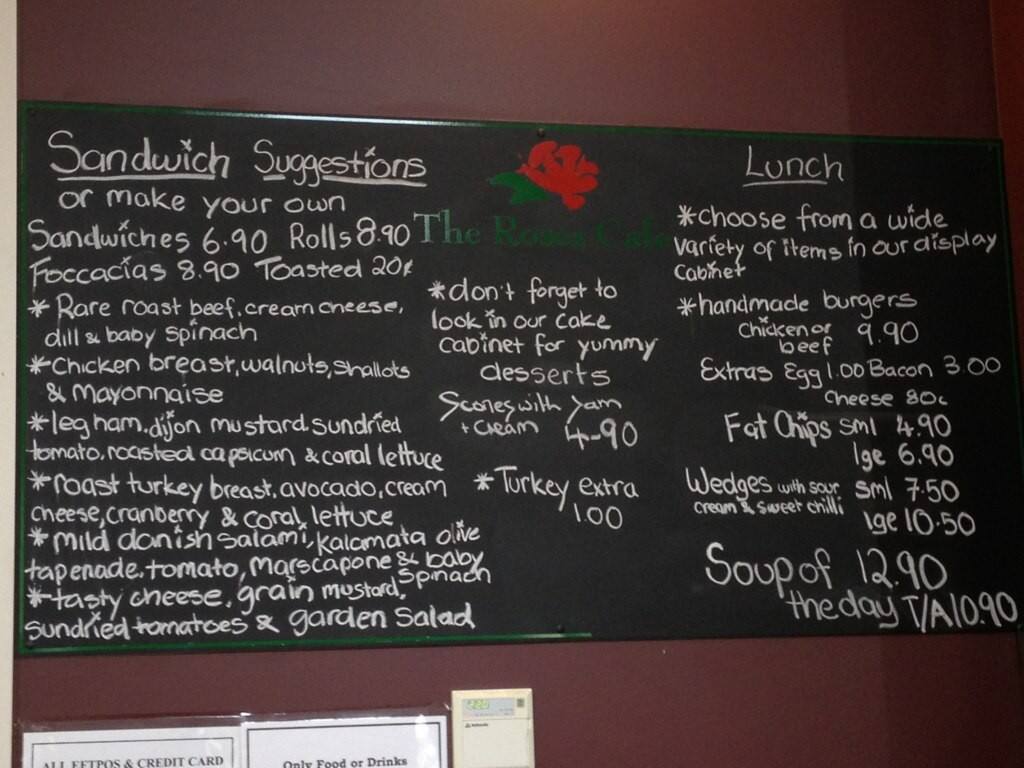 Sandwich Suggestions
or make your own
Sandwiches 6.90 Rolls 8.90
Foccacias 8.90 Toasted 20¢
* Rare roast beef, cream cheese,
dill & baby spinach
* Chicken breast, walnuts, shallots
& mayonnaise
* leg ham, dijon mustard, sundried
tomato, roasted capsicum & coral lettuce
* roast turkey breast, avocado, cream
cheese, cranberry & coral lettuce
* mild danish salami, kalamata olive
tapenade, tomato, marscapone & baby
spinach
* tasty cheese, grain mustard,
sundried tomatoes & garden salad
The Roses Cafe
* don't forget to
look in our cake
cabinet for yummy
desserts
Scones with Jam
+ cream 4-90
* Turkey extra
1.00
Lunch
* choose from a wide
variety of items in our display
cabinet
* handmade burgers
chicken or 9.90
beef
Extras Egg 1.00 Bacon 3.00
cheese 80c
Fat Chips sml 4.90
lge 6.90
Wedges with sour sml 7.50
cream & sweet chilli
lge 10.50
Soup of 12.90
the day T/A 10.90
ALL EFTPOS & CREDIT CARD
Only Food or Drinks